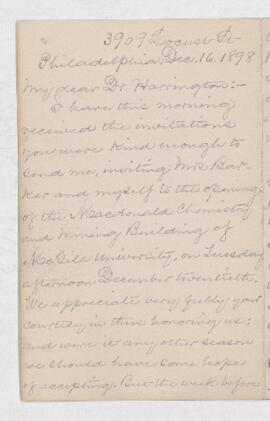 3909 Locust St
Philadelphia, Dec. 16. 1898
My dear Dr. Harrington:-
I have this morning
received the invitations
you were kind enough to
send me, inviting Mrs Bar-
ker and myself to the opening
of the Macdonald Chemistry
and Mining Building of
McGill University, on Tuesday
afternoon December twentieth.
We appreciate very fully your
courtesy in thus honoring us;
and were it any other season
we should have some hope
of accepting. But the week before